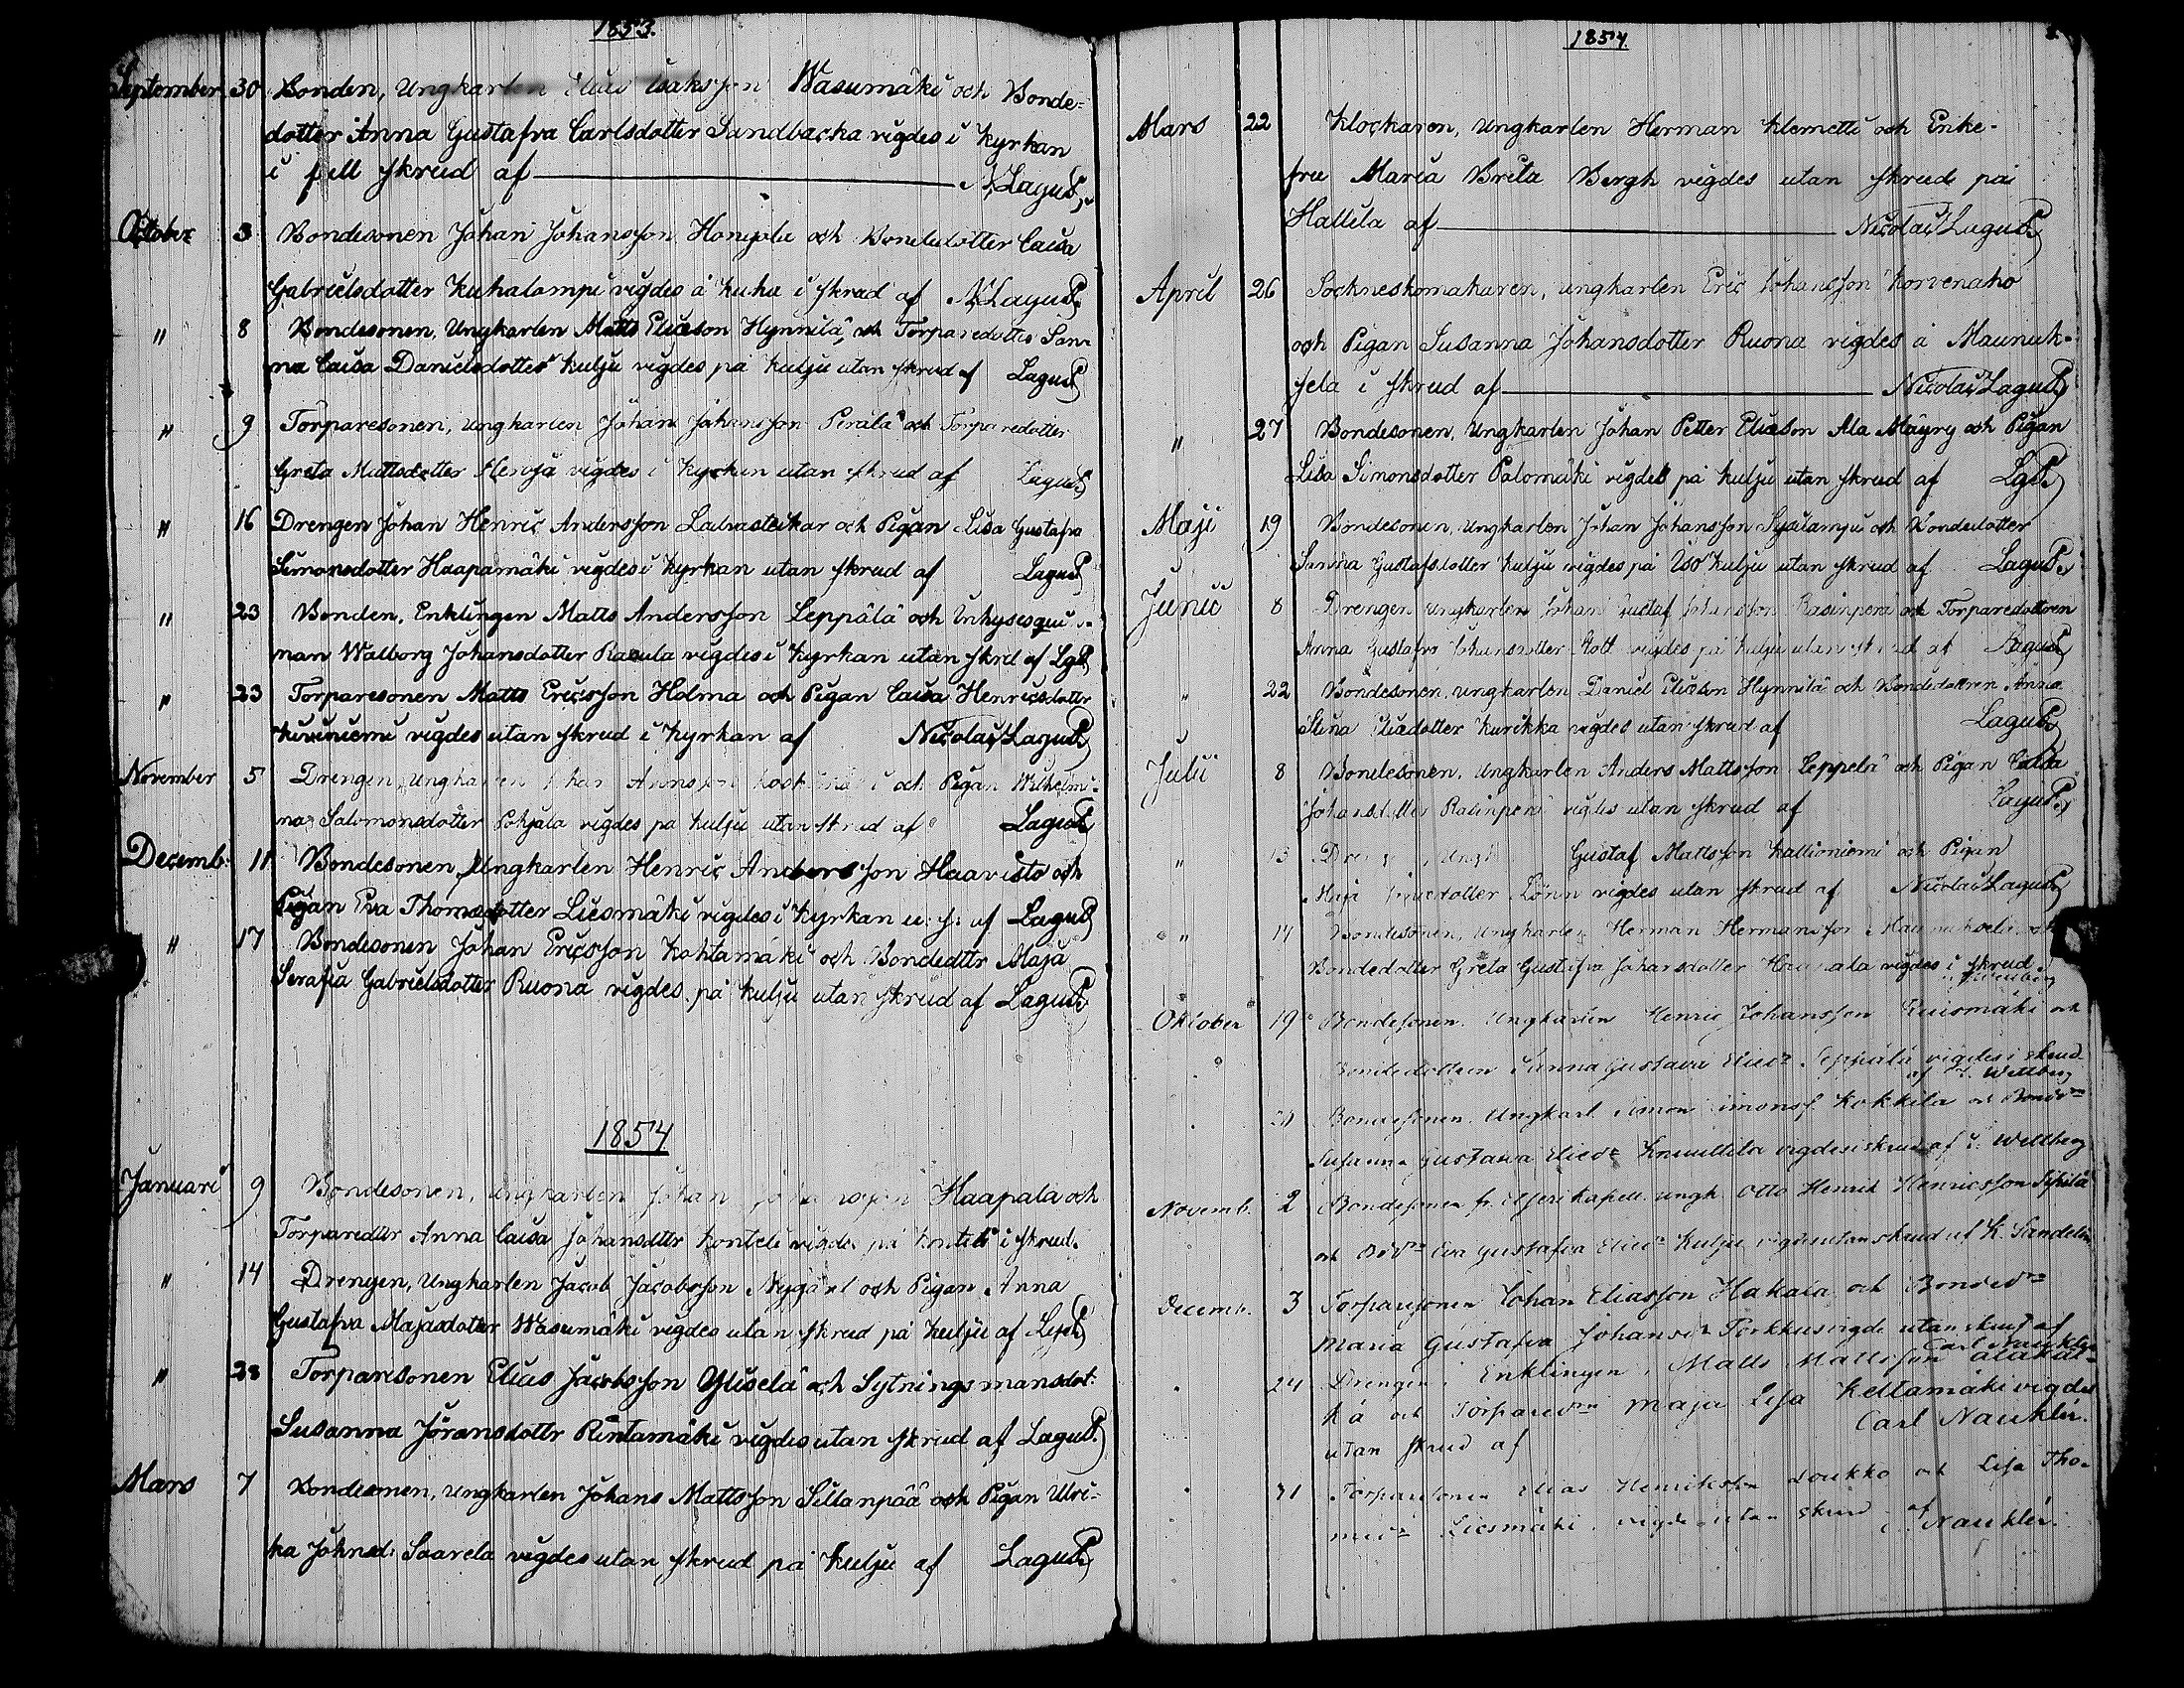 1853.
September 30 Bonden, Ungkarlen Elias Isaksson Wasumäki och Bonde-
dotter Anna Gustafva Carlsdotter Sandbacka vigdes i Kyrkan
i full skrud af N. Lagus.
Oktober 3 Bondesonen Johan Johansson Hongola och Bondedotter Caisa
Gabrielsdotter Kuhalampi vigdes å Kuha i skrud af N. Lagus.
" 8 Bondesonen, Ungkarlen Matts Eliæson Hynnilä, och Torparedotter San-
na Caisa Danielsdotter Kulju vigdes på Kulju utan skrud af Lagus
" 9 Torparesonen, ungkarlen Johan Johansson Perälä och Torparedotter
Greta Mattsdotter Heroja vigdes i Kyrkan utan skrud af Lagus
" 16 Drengen Johan Henric Andersson och Pigan Lisa Gustafva
Simonsdotter Haapamäki vigdes i Kyrkan utan skrud af Lagus
" 23 Bonden, Enklingen Matts Andersson Leppälä och Inhysesqui-
nan Walborg Johansdotter Rasula vigdes i Kyrkan utan skrd af Lgs
" 23 Torparesonen Matts Ericsson Holma och Pigan Caisa Henricsdotter
Kiviniemi vigdes utan skrud i Kyrkan af Nicolai Lagus
November 5 Drengen, Ungkarlen och Pigan Wilhelmi-
na Salomonsdotter Pohjala vigdes på Kulju utan skrud af Lagus
Decemb: 11 Bondesonen, Ungkarlen Henric Andersson Haavisto och
Pigan Eva Thomasdotter Liesmäki vigdes i Kyrkan u. s. af Lagus
" 17 Bondesonen Johan Ericsson Kohtamäki och Bondedttr Maja
Serafia Gabrielsdotter Ruona vigdes på Kulju utan skrud af Lagus.
1854
Januari 9 Bondesonen, Ungkarlen Johan Haapala och
Torparedttr Anna Caisa Johansdttr Konteli vigdes på i skrud.
" 14 Drengen, Ungkarlen Jacob Jacobsson Nygård och Pigan Anna
Gustafva Majasdotter Wasumäki vigdes utan skrud på Kulju af
" 28 Torparesonen Elias Jacobsson Yliselä och Sytningsmansdot:
Susanna Jöransdottr Rintamäki vigdes utan skrud af Lagus.
Mars 7 Bondesonen, Ungkarlen Johans Mattsson Sillanpää och Pigan Ulri-
ka Johnsd: Saarela vigdes utan skrud på Kulju af Lagus.
1854.
Mars 22 Klockaren, Ungkarlen Herman Klemetti och Enke-
fru Maria Brita Bergh vigdes utan skrud på
Hallila af Nicolai Lagus.
April 26 Sockneskomakaren, ungkarlen Eric Johansson Korvenaho
och Pigan Susanna Johansdotter Ruona vigdes å Maunuk-
sela i skrud af Nicolai Lagus
" 27 Bondesonen, Ungkarlen Johan Petter Eliæson Ala Mäyry och Pigan
Lisa Simonsdotter Palomäki vigdes på Kulju utan skrud af Lgs.
Maji 19 Bondesonen, Ungkarlen Johan Johansson och Bondedotter
Sanna Gustafsdotter Kulju vigdes på Iso Kulju utan skrud af Lagus.
Junii 8 Drengen Ungkarlen Johan Gustaf Johansson Rasinperä och Torparedottren
Anna Gustafva Johansdotter vigdes på Kulju utan skrud af Lagus
" 22 Bondesonen, ungkarlen Daniel Eliæson Hynnilä och Bondedottren Anna
Stina Eliædotter Kurikka vigdes utan skrud af Lagus
Julii 8 Bondesonen, Ungkarlen Anders Mattsson Leppelä och Pigan Caisa
Johansdotter Rasinperä vigdes utan skrud af Lagus.
" 13 Gustaf Mattsson Kallioniemi och Pigan
Maja Lönn vigdes utan skrud af Nicolai Lagus
" 14 Bondesonen, Ungkarlen Herman Hermansson och
Bondedotter Greta Gustafva Johansdotter vigdes i skrud
Oktober 19 Bondesonen. Ungkarlen Henric Johansson Ruismäki och
Bondedottren Sanna Gustava Elied:r Seppälä vigdes i skrud
af I. Wellberg
Bondesonen. Ungkarl. Simon Simonss. Kokkila och
Susanna Gustava Elied:r Knuuttila vigdes i skrud af I. Wellberg
Novemb. 2 Bondesonen fr. Etseri kapell ungk. Otto Henrik Henricsson Sipilä
och Eva Gustafva Elied:r Kulju vigdes utan skrud af K. Sandelin
Decemb. 3 Torparesonen Johan Eliasson Hakala och
Maria Gustafva Porkkus vigde utan skrud af
Carl Nauklér
24 Drengen, Enklingen, Matts Mattsson
kä och Maja Lisa Keltamäki vigdes
utan skrud af Carl Nauklér.
31 Torparesonen Elias Henriksson Loukko och Lisa Tho-
Liesmäki. vigde utan skrud af Nauklér.